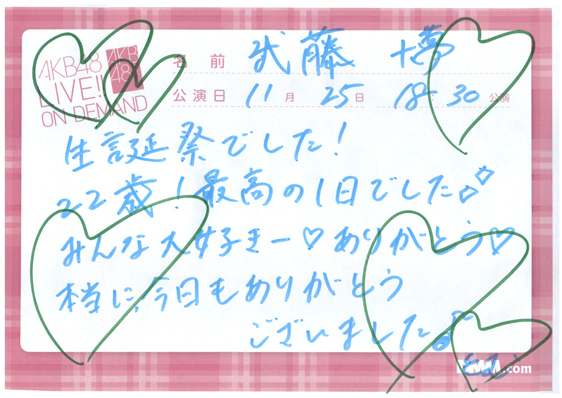 AKB48
LIVE!!
ON DEMAND
AKB
48
名前 武藤 十夢
公演日 11月 25日 18:30 公演
生誕祭でした!
22歳!最高の1日でした
みんな大好きー♡ありがとう♡
本当に、今日もありがとう
ございました
.com